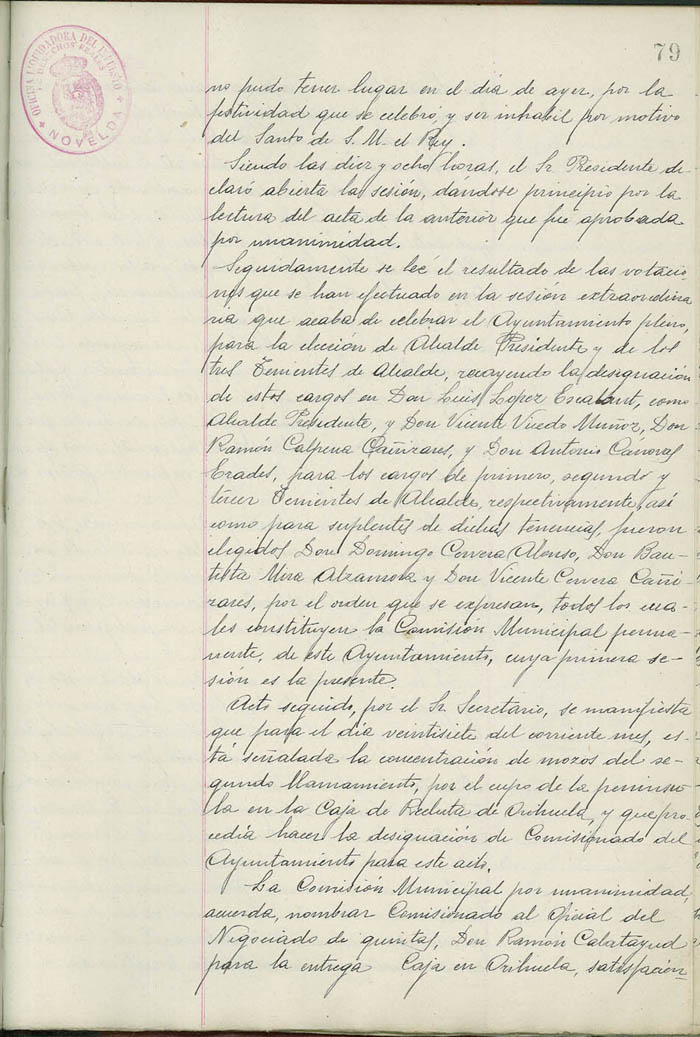 79
OFICINA LIQUIDADORA DEL IMPUESTO
DERECHOS REALES
NOVELDA
no pudo tener lugar en el día de ayer, por la
festividad que se celebró, y ser inhabil por motivo
del Santo de S. M. el Rey.
Siendo las diez y ocho horas, el Sr. Presidente de-
claró abierta la sesión, dandose principio por la
lectura del acta de la anterior que fué aprobada
por unanimidad.
Seguidamente se leé el resultado de las votacio
nes que se han efectuado en la sesión extraordina
ria que acaba de celebrar el Ayuntamiento pleno,
para la elección de Alcalde Presidente y de los
tres Tenientes de Alcalde, recayendo la designación
de estos cargos en Don Luis López Escalant, como
Alcalde Presidente, y Don Vicente Vicedo Muñoz, Don
Ramón Calpena Cañizares, y Don Antonio Cánovas
Erades, para los cargos de primero, segundo y
tercer Tenientes de Alcalde, respectivamente, así
como para suplentes de dichas tenencias, fueron
elegidos Don Domingo Cervera Alonso, Don Bau-
tista Mira Alzamora y Don Vicente Cervera Cañi-
zares, por el orden que se expresan, todos los cua-
les constituyen la Comisión Municipal perma-
nente, de este Ayuntamiento, cuya primera se-
sión es la presente.
Acto seguido, por el Sr. Secretario, se manifiesta
que para el día veintisiete del corriente mes, es-
tá señalada la concentración de mozos del se-
gundo llamamiento, por el cupo de la peninsu-
la en la Caja de Recluta de Orihuela, y que pro-
cedía hacer la designación de Comisionado del
Ayuntamiento para este acto.
La Comisión Municipal por unanimidad,
acuerda, nombrar Comisionado al Oficial del
Negociado de quintas, Don Ramón Calatayud
para la entrega Caja en Orihuela, satisfacien